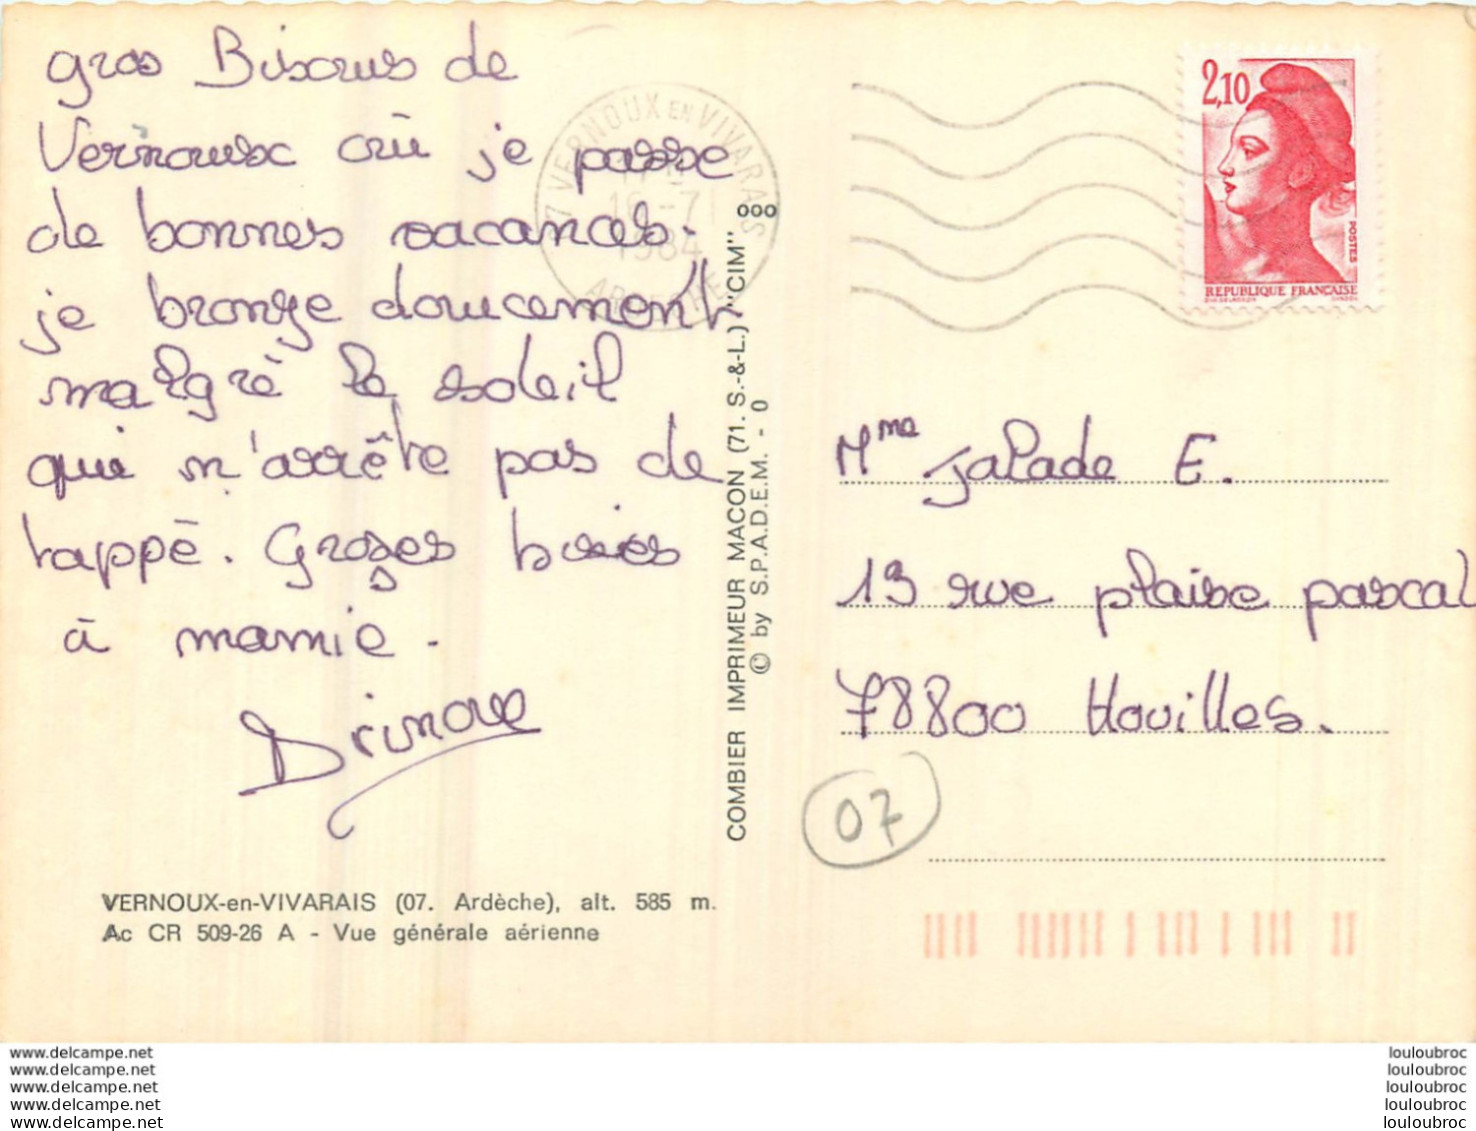 gros Bisous de
Vernoux où je passe
de bonnes vacances.
je bronze doucement
malgré le soleil
qui n'arrête pas de
tappé. Groses bises
à mamie.
VERNOUX-en-VIVARAIS (07. Ardèche), alt. 585 m.
Ac CR 509-26 A - Vue générale aérienne
VERNOUX EN VIVARAIS
1984
COMBIER IMPRIMEUR MACON (71. S.-&-L.) "CIM"
© by S.P.A.D.E.M. - 0
2,10
POSTES
REPUBLIQUE FRANÇAISE
Mme Jalade E.
13 rue plaise pascal
78800 Houilles.
07
www.delcampe.net
www.delcampe.net
www.delcampe.net
www.delcampe.net
www.delcampe.net
louloubroc
louloubroc
louloubroc
louloubroc
louloubroc